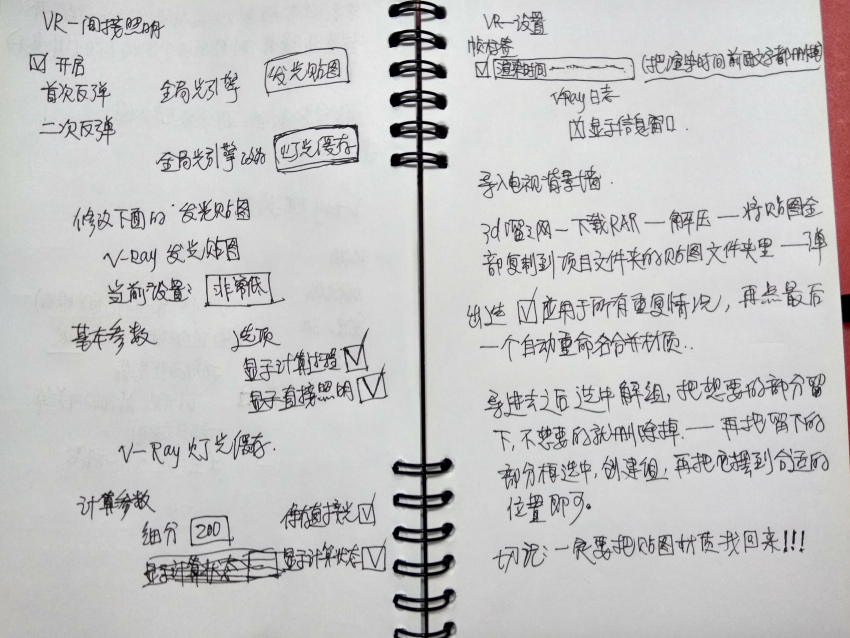 VR-间接照明
开启
首次反弹 全局光引擎 发光贴图
二次反弹
全局光引擎 灯光缓存
修改下面的"发光贴图
V-Ray 发光贴图
当前设置: 非常低
基本参数 选项
显示计算过程
显示直接照明
V-Ray 灯光缓存.
计算参数
细分 200 储存直接光
显示计算状态 显示计算状态
VR-设置
帧存器
渲染时间 (把渲染时间前面文字都删掉)
VRay日志
显示信息窗口.
导入电视背景墙.
3d溜溜网—下载RAR—解压—将贴图全
部复制到项目文件夹的贴图文件夹里—弹
出选 应用于所有重复情况,再点最后
一个自动重命名合并材质..
导进去之后选中解组,把想要的部分留
下,不想要的就删除掉.—再把留下的
部分框选中,创建组,再把它摆到合适的
位置即可。
切记:一定要把贴图材质找回来!!!